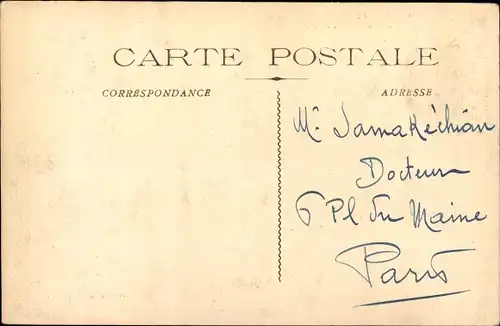 CARTE POSTALE
CORRESPONDANCE
ADRESSE
Mr. Samakéchian
Docteur
6 Pl du Maine
Paris